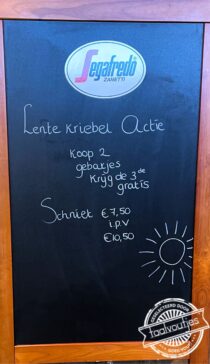 Segafredo
ZANETTI
Lente Kriebel Actie
Koop 2
gebakjes
Krijg de 3de
gratis
Schniet €7,50
i.p.v
€10,50
taalvoutjes